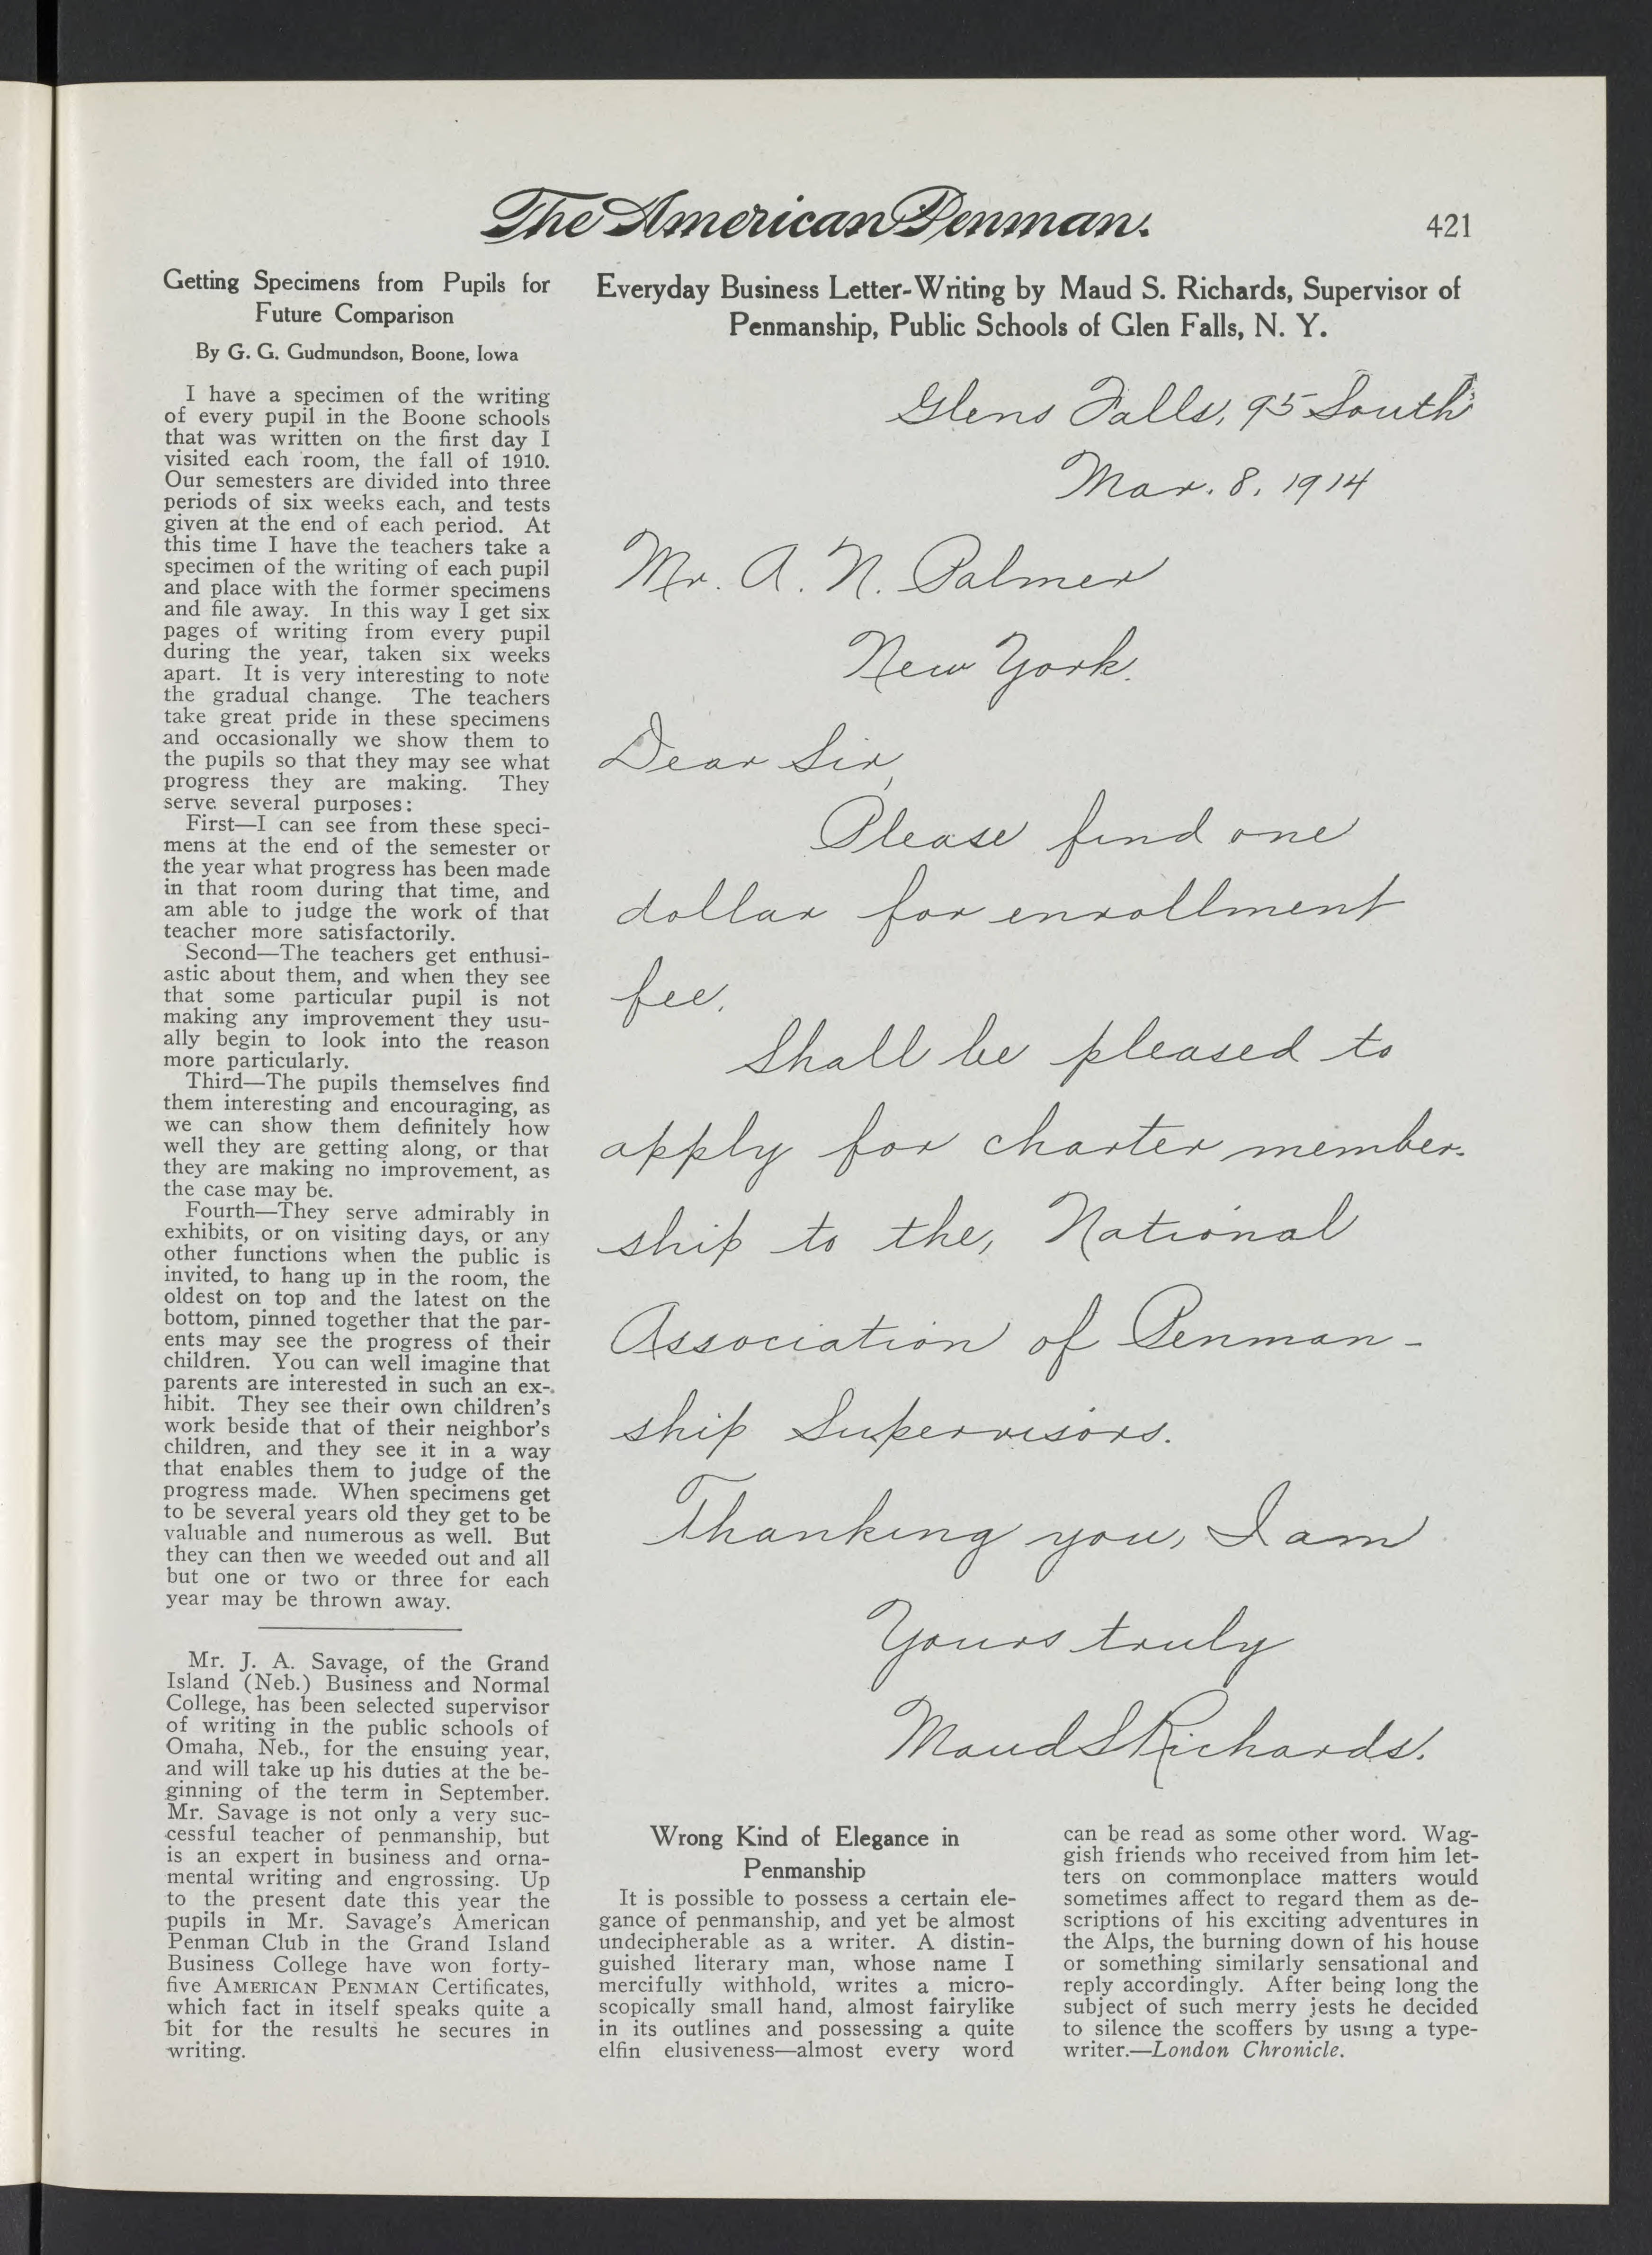 The American Penman.
421
Getting Specimens from Pupils for
Future Comparison
By G. G. Gudmundson, Boone, Iowa
I have a specimen of the writing
of every pupil in the Boone schools
that was written on the first day I
visited each room, the fall of 1910.
Our semesters are divided into three
periods of six weeks each, and tests
given at the end of each period. At
this time I have the teachers take a
specimen of the writing of each pupil
and place with the former specimens
and file away. In this way I get six
pages of writing from every pupil
during the year, taken six weeks
apart. It is very interesting to note
the gradual change. The teachers
take great pride in these specimens
and occasionally we show them to
the pupils so that they may see what
progress they are making. They
serve several purposes:
First—I can see from these speci-
mens at the end of the semester or
the year what progress has been made
in that room during that time, and
am able to judge the work of that
teacher more satisfactorily.
Second—The teachers get enthusi-
astic about them, and when they see
that some particular pupil is not
making any improvement they usu-
ally begin to look into the reason
more particularly.
Third—The pupils themselves find
them interesting and encouraging, as
we can show them definitely how
well they are getting along, or that
they are making no improvement, as
the case may be.
Fourth—They serve admirably in
exhibits, or on visiting days, or any
other functions when the public is
invited, to hang up in the room, the
oldest on top and the latest on the
bottom, pinned together that the par-
ents may see the progress of their
children. You can well imagine that
parents are interested in such an ex-
hibit. They see their own children's
work beside that of their neighbor's
children, and they see it in a way
that enables them to judge of the
progress made. When specimens get
to be several years old they get to be
valuable and numerous as well. But
they can then we weeded out and all
but one or two or three for each
year may be thrown away.
Mr. J. A. Savage, of the Grand
Island (Neb.) Business and Normal
College, has been selected supervisor
of writing in the public schools of
Omaha, Neb., for the ensuing year,
and will take up his duties at the be-
ginning of the term in September.
Mr. Savage is not only a very suc-
cessful teacher of penmanship, but
is an expert in business and orna-
mental writing and engrossing. Up
to the present date this year the
pupils in Mr. Savage's American
Penman Club in the Grand Island
Business College have won forty-
five AMERICAN PENMAN Certificates,
which fact in itself speaks quite a
bit for the results he secures in
writing.
Everyday Business Letter-Writing by Maud S. Richards, Supervisor of
Penmanship, Public Schools of Glen Falls, N. Y.
Glens Falls, 95 South
Mar. 8, 1914
Mr. A. N. Palmer
New York.
Dear Sir,
Please find one
dollar for enrollment
fee.
Shall be pleased to
apply for charter member-
ship to the, National
Association of Penman-
ship Supervisors.
Thanking you, I am
Yours truly
Maud S Richards.
Wrong Kind of Elegance in
Penmanship
It is possible to possess a certain ele-
gance of penmanship, and yet be almost
undecipherable as a writer. A distin-
guished literary man, whose name I
mercifully withhold, writes a micro-
scopically small hand, almost fairylike
in its outlines and possessing a quite
elfin elusiveness—almost every word
can be read as some other word. Wag-
gish friends who received from him let-
ters on commonplace matters would
sometimes affect to regard them as de-
scriptions of his exciting adventures in
the Alps, the burning down of his house
or something similarly sensational and
reply accordingly. After being long the
subject of such merry jests he decided
to silence the scoffers by using a type-
writer.—London Chronicle.